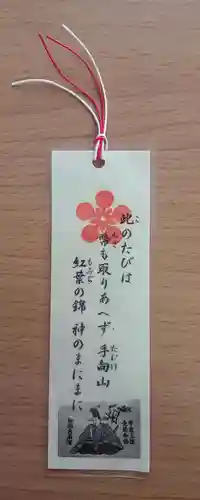 此のたびは
幣も取りあへず 手向山
紅葉の錦 神のまにまに